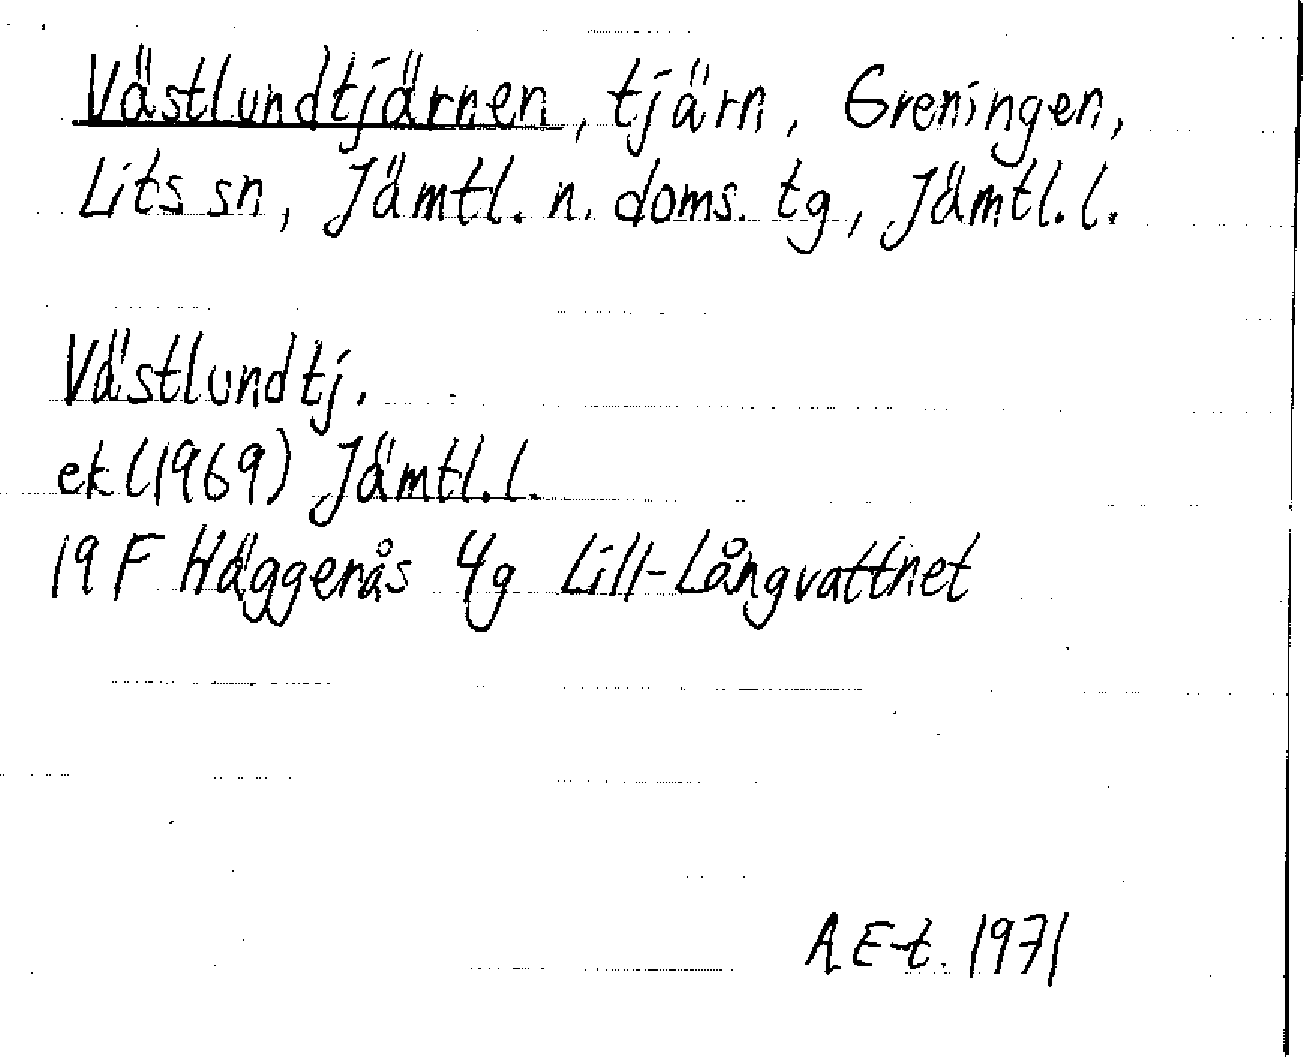 Västlundtjärnen, tjärn, Greningen,
Lits sn, Jämtl. n. doms. tg, Jämtl. l.
Västlundtj.
ek (1969) Jämtl. l.
19 F Häggenås 4g Lill-Långvattnet
A E-t. 1971